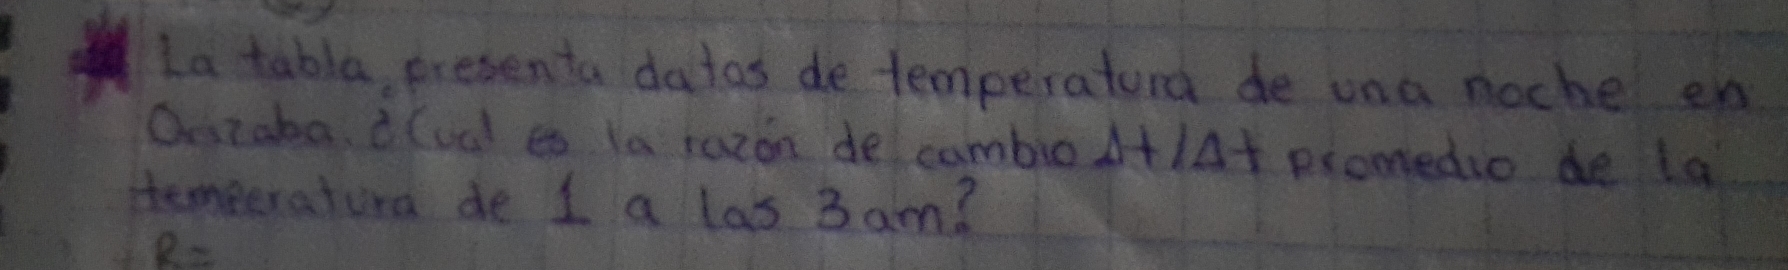 La tabla, presenta datos de temperatura de una noche en
Orizaba. ¿Cual es la razón de cambio Δt/Δt promedio de la
temperatura de 1 a las 3 am?
R=